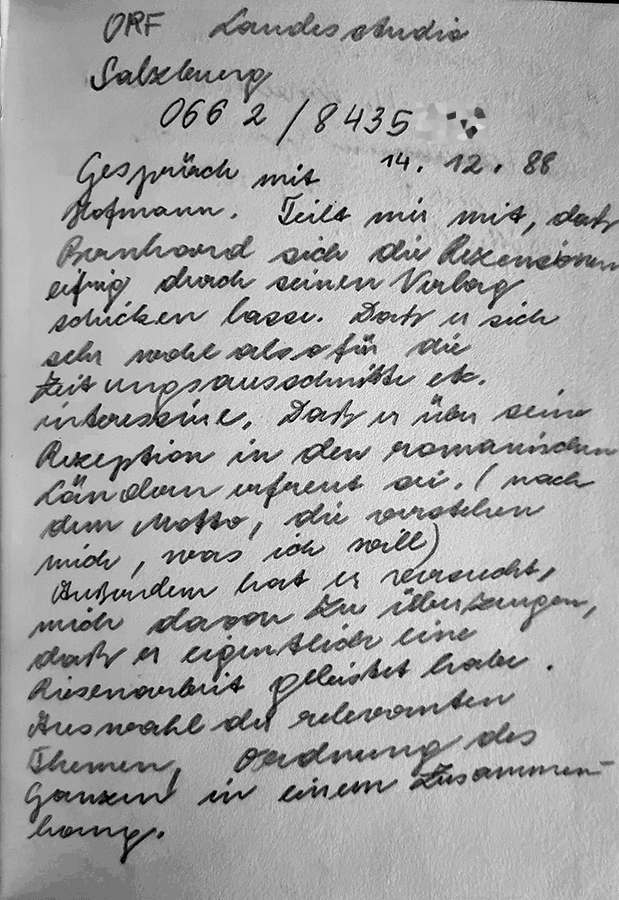 ORF Landesstudio
Salzburg
0662 / 8435
14. 12. 88
Gespräch mit
Hofmann. Teilt mir mit, daß
Bernhard sich die Rezensionen
eifrig durch seinen Verlag
schicken lasse. Daß er sich
sehr wohl also für die
Zeitungsausschnitte etc.
interessiere. Daß er über seine
Rezeption in den romanischen
Ländern erfreut sei. (nach
dem Motto, die verstehen
mich, was ich will)
Außerdem hat er versucht,
mich davon zu überzeugen,
daß er eigentlich eine
Riesenarbeit geleistet habe.
Auswahl der relevanten
Themen, Ordnung des
Ganzen in einem Zusammen-
hang.